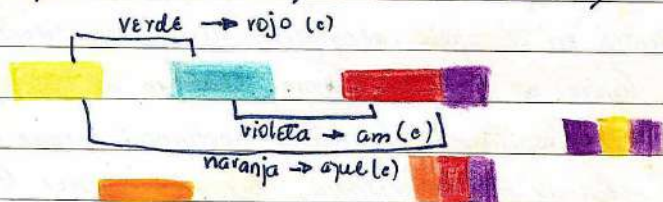 verde → rojo (c)
violeta → am (c)
naranja → azul (c)